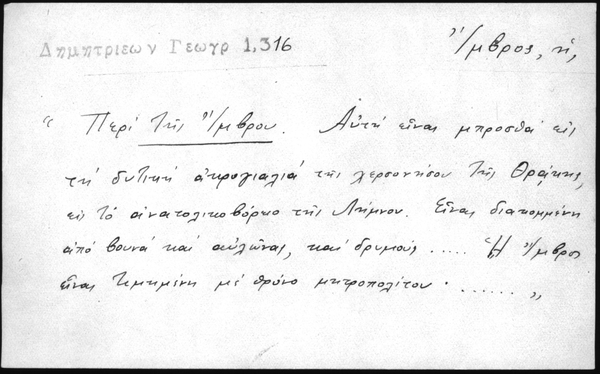 Δημητριεων Γεωγρ 1,316
Ἴμβρος, ἡ,
“ Περί τῆς Ἴμβρου. Αὐτή εἶναι μπροσθά εἰς
τή δυτική ἀκρογιαλιά τῆς χερσονήσου τῆς Θράκης,
εἰς τό ἀνατολικοβόρειο τῆς Λήμνου. Εἶναι διακομμένη
ἀπό βουνά καί αὐλῶνας, καί δρυμούς ..... Ἡ Ἴμβρος
εἶναι τιμημένη μέ θρόνο μητροπολίτου· ...... „